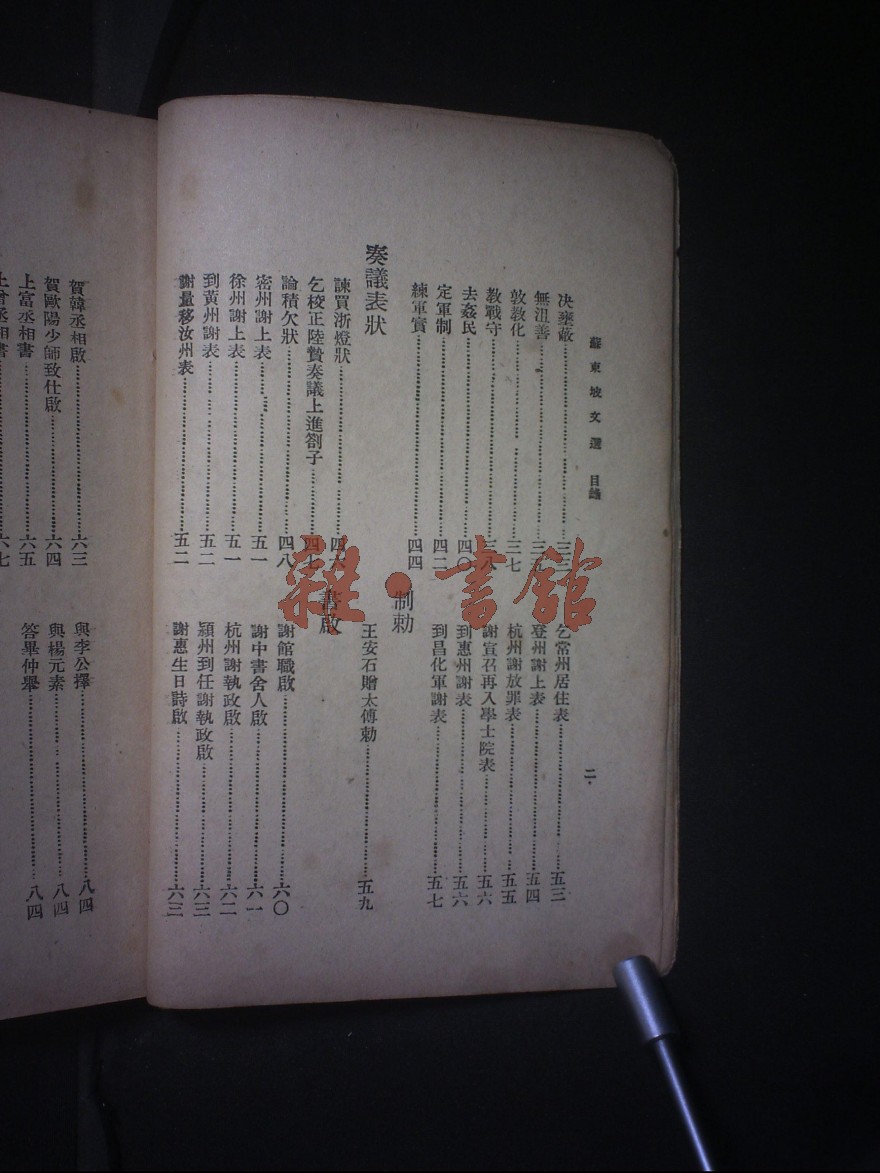 蘇東坡文選 目錄 二
决壅蔽……三三
無沮善……三五
敦教化……三七
教戰守……三八
去姦民……四〇
定軍制……四二
練軍實……四四
奏議表狀
諫買浙燈狀……四六
乞梭正陸贄奏議上進劄子……四七
論積欠狀……四八
密州謝上表……五一
徐州謝上表……五一
到黃州謝表……五二
謝量移汝州表……五二
乞常州居住表……五三
登州謝上表……五四
杭州謝放罪表……五五
謝宣召再入學士院表……五六
到惠州謝表……五六
到昌化軍謝表……五七
制勅
王安石贈太傅勅……五九
書啟
謝館職啟……六〇
謝中書舍人啟……六一
杭州謝執政啟……六二
潁州到任謝執政啟……六三
謝惠生日詩啟……六三
賀韓丞相啟……六三
賀歐陽少師致仕啟……六四
上富丞相書……六五
上曾丞相書……六七
與李公擇……八四
與楊元素……八四
答畢仲舉……八四
雜·書館